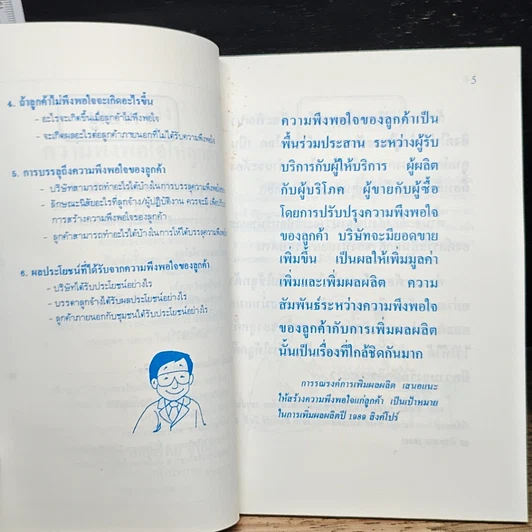 4. ถ้าลูกค้าไม่พึงพอใจจะเกิดอะไรขึ้น
- อะไรจะเกิดขึ้นเมื่อลูกค้าไม่พึงพอใจ
- จะเกิดผลอะไรต่อลูกค้าภายนอกที่ไม่ได้รับความพึงพอใจ
5. การบรรลุถึงความพึงพอใจของลูกค้า
- บริษัทสามารถทำอะไรได้บ้างในการบรรลุความพึงพอใจ
- ลักษณะนิสัยอะไรที่ลูกจ้าง/ผู้ปฏิบัติงาน ควรจะมี
การสร้างความพึงพอใจของลูกค้า
- ลูกค้าสามารถทำอะไรได้บ้างในการให้ได้รับความพึงพอใจ
6. ผลประโยชน์ที่ได้รับจากความพึงพอใจของลูกค้า
- บริษัทได้รับประโยชน์อย่างไร
- บรรดาลูกจ้างได้รับผลประโยชน์อย่างไร
- ลูกค้าภายนอกกับชุมชนได้รับประโยชน์อย่างไร
5
ความพึงพอใจของลูกค้าเป็น
พื้นร่วมประสาน ระหว่างผู้รับ
บริการกับผู้ให้บริการ ผู้ผลิต
กับผู้บริโภค ผู้ขายกับผู้ซื้อ
โดยการปรับปรุงความพึงพอใจ
ของลูกค้า บริษัทจะมียอดขาย
เพิ่มขึ้น เป็นผลให้เพิ่มมูลค่า
เพิ่มและเพิ่มผลผลิต ความ
สัมพันธ์ระหว่างความพึงพอใจ
ของลูกค้ากับการเพิ่มผลผลิต
นั้นเป็นเรื่องที่ใกล้ชิดกันมาก
การรณรงค์การเพิ่มผลผลิต เสนอแนะ
ให้สร้างความพึงพอใจแก่ลูกค้า เป็นเป้าหมาย
ในการเพิ่มผลผลิตปี 1989 สิงคโปร์